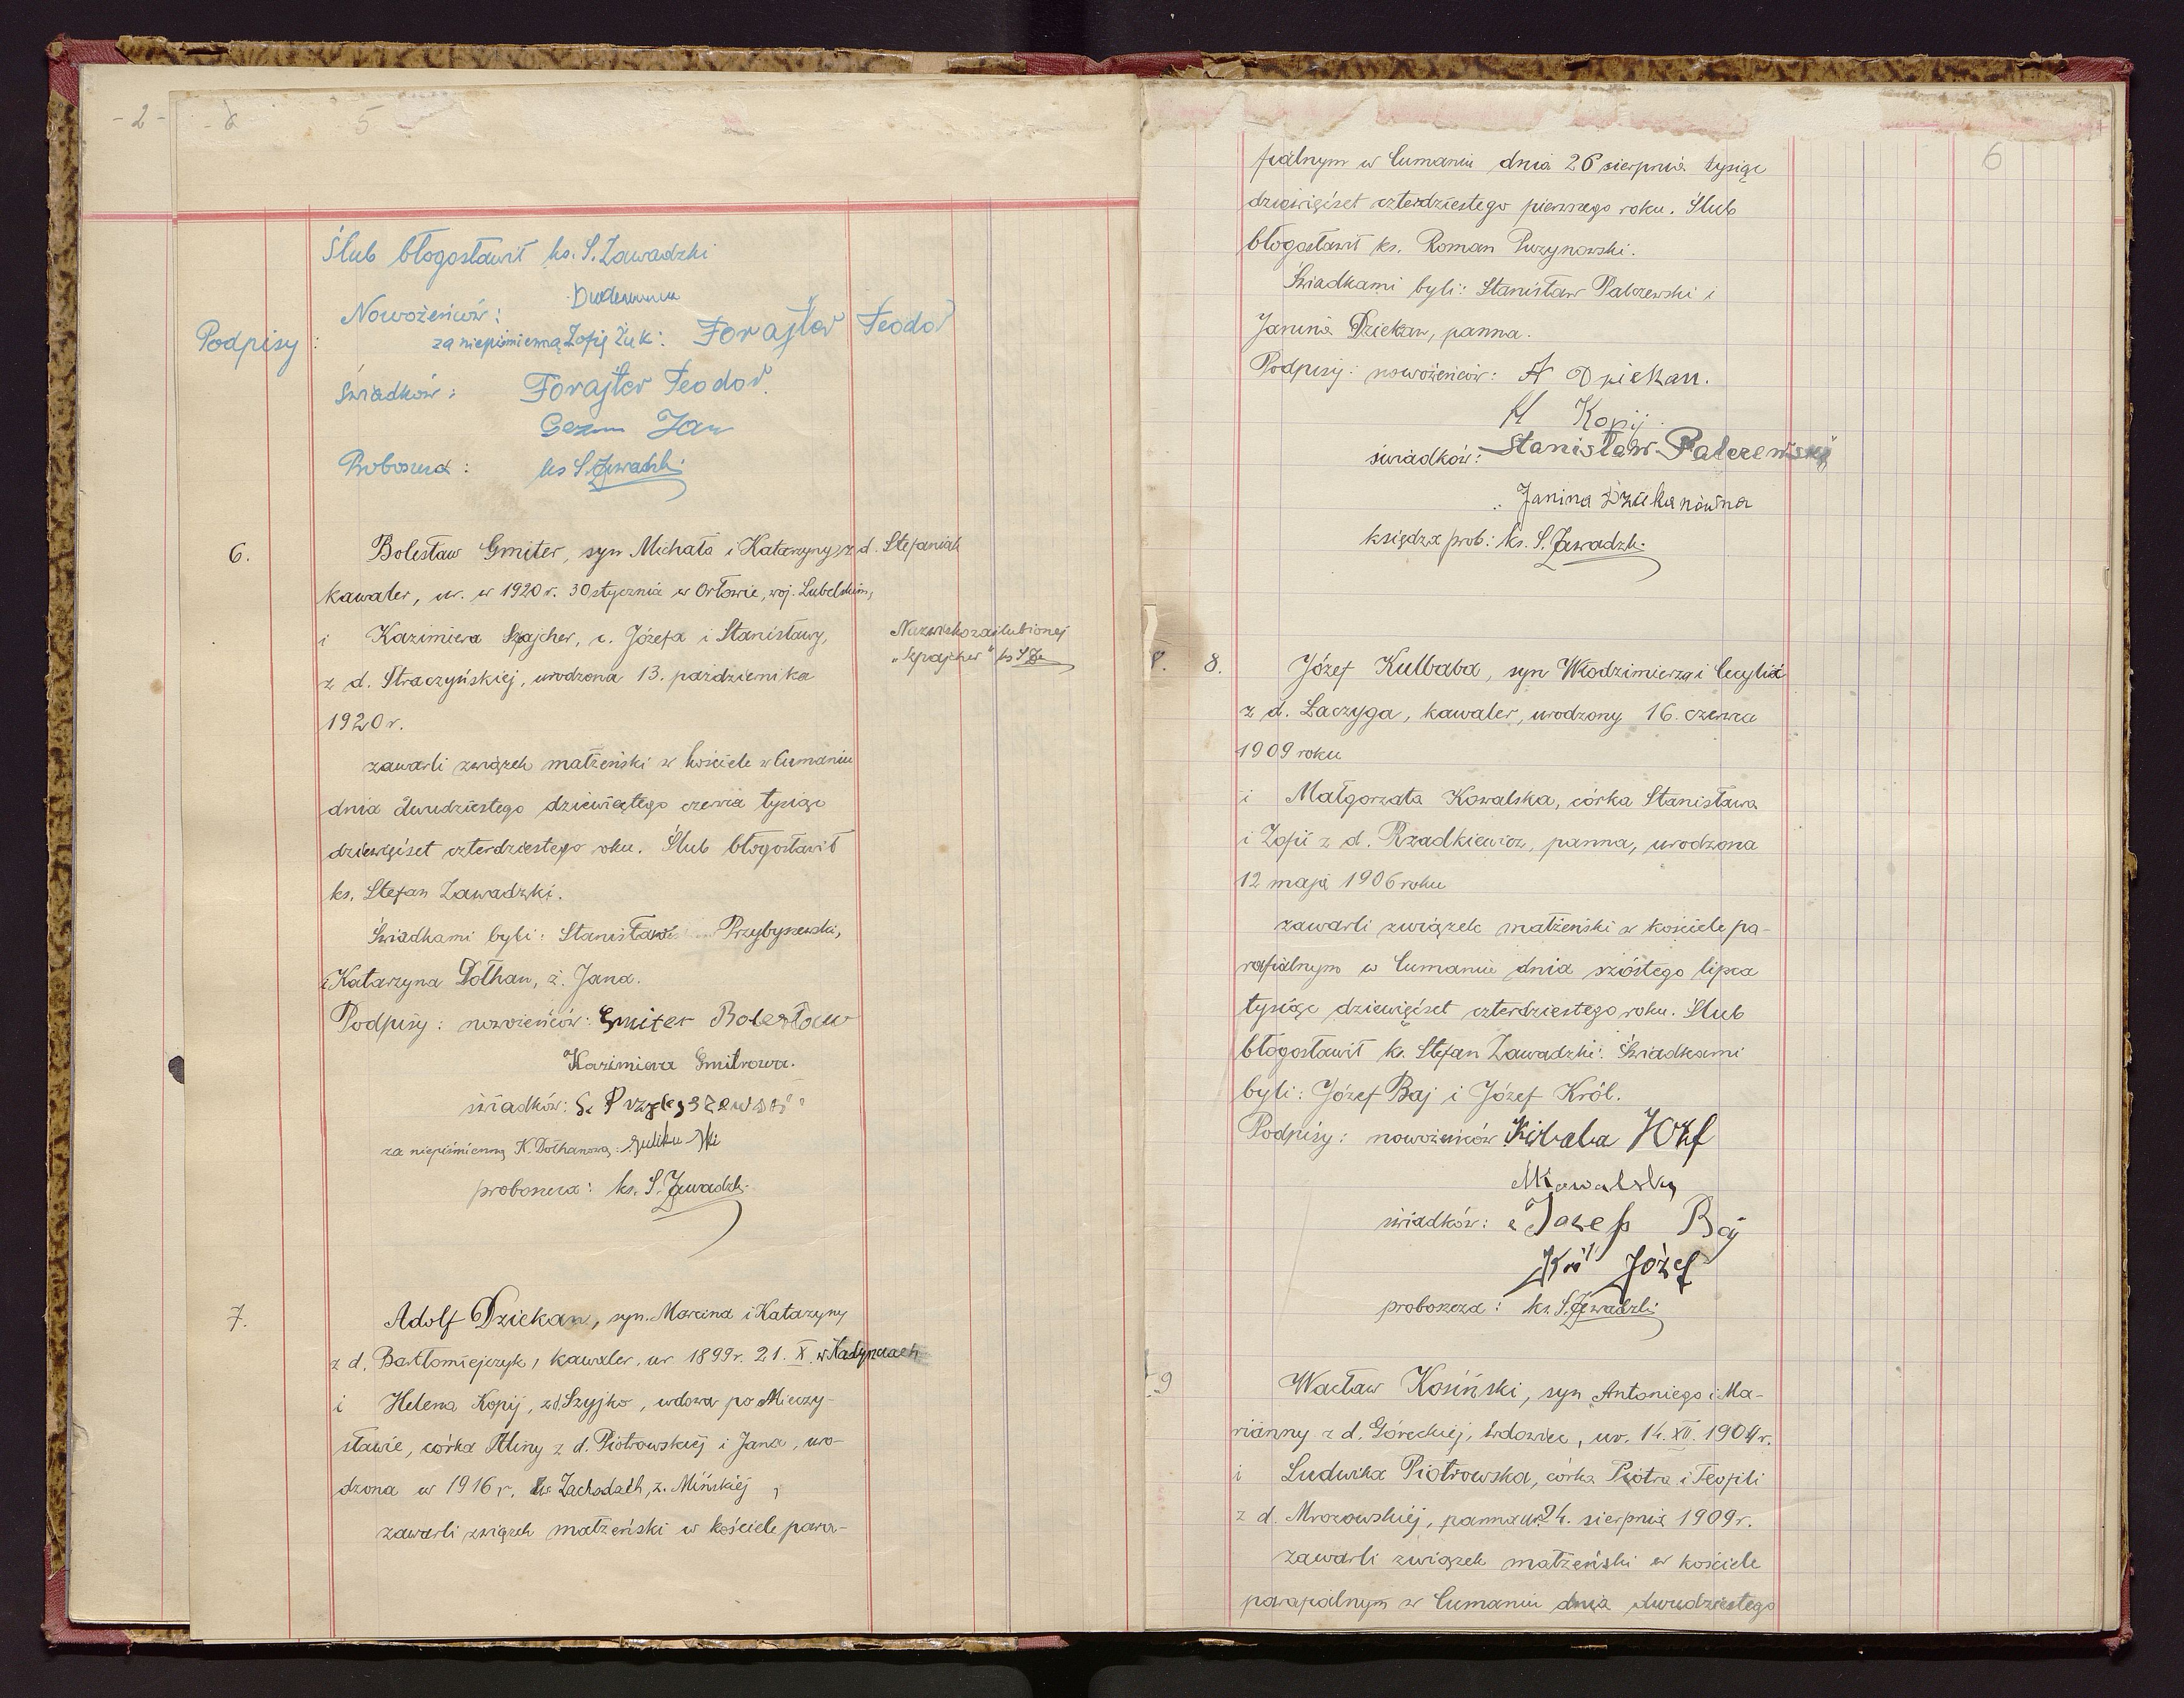 - 2 -
6
5
Ślub błogosławił ks. S. Zawadzki
Podpisy :
Nowożeńców :
za niepiśmienną Zofię Żuk : Forajter Teodor
Świadków : Forajter Teodor
Jan
Proboszcz : ks S. Zawadzki
6.
Bolesław Gmiter, syn Michała i Katarzyny z d. Stefaniak
kawaler, ur. w 1920 r. 30 stycznia w Orłowie, woj. Lubelskim,
i Kazimiera Szpajcher, c. Józefa i Stanisławy,
z d. Straczyńskiej, urodzona 13. października
1920 r.
Nazwisko zaślubionej
"Szpajcher" ks S Za
zawarli związek małżeński w kościele w Cumaniu
dnia dwudziestego dziewiątego czerwca tysiąc
dziewięćset czterdziestego roku. Ślub błogosławił
ks. Stefan Zawadzki.
Świadkami byli : Stanisław Przybyszewski,
i Katarzyna Dołhan, ż. Jana.
Podpisy : nowożeńców : Gmiter Bolesław
Kazimiera Gmitrowa.
świadków : S. Przybyszewski
za niepiśmienną K. Dołhanową :
proboszcza : ks. S. Zawadzki
7.
Adolf Dziekan, syn Marcina i Katarzyny
z d. Bartłomiejczyk, kawaler, ur 1899 r. 21. X. w
i Helena Kopij, z d. Szyjko, wdowa po Mieczy-
sławie, córka Aliny z d. Piotrowskiej i Jana, uro-
dzona w 1916 r. w Zachodach, z. Mińskiej ,
zawarli związek małżeński w kościele para-
6
fialnym w Cumaniu dnia 26 sierpnia tysiąc
dziewięćset czterdziestego pierwszego roku. Ślub
błogosławił ks. Roman Purzynowski.
Świadkami byli : Stanisław Palczewski i
Janina Dziekan, panna.
Podpisy : nowożeńców : A Dziekan.
H Kopij
świadków : Stanisław Palczewski
Janina Dziekanówna
księdza prob : ks. S. Zawadzki
8.
8.
Józef Kulbaba, syn Włodzimierza i Cecylii
z d. Łaczyga, kawaler, urodzony 16. czerwca
1909 roku
i Małgorzata Kowalska, córka Stanisława
i Zofii z d. Rzadkiewicz, panna, urodzona
12 maja 1906 roku
zawarli związek małżeński w kościele pa-
rafialnym w Cumaniu dnia szóstego lipca
tysiąc dziewięćset czterdziestego roku. Ślub
błogosławił ks. Stefan Zawadzki. Świadkami
byli : Józef Baj i Józef Król.
Podpisy : nowożeńców Kulbaba Józef
MKowalska
świadków : Józef Baj
Król Józef
proboszcza : ks. S. Zawadzki
9
Wacław Kosiński, syn Antoniego i Ma-
rianny z d. Góreckiej, wdowiec, ur. 14. XII. 1904 r.
i Ludwika Piotrowska, córka Piotra i Teofili
z d. Mrozowskiej, panna ur. 24. sierpnia 1909 r.
zawarli związek małżeński w kościele
parafialnym w Cumaniu dnia dwudziestego